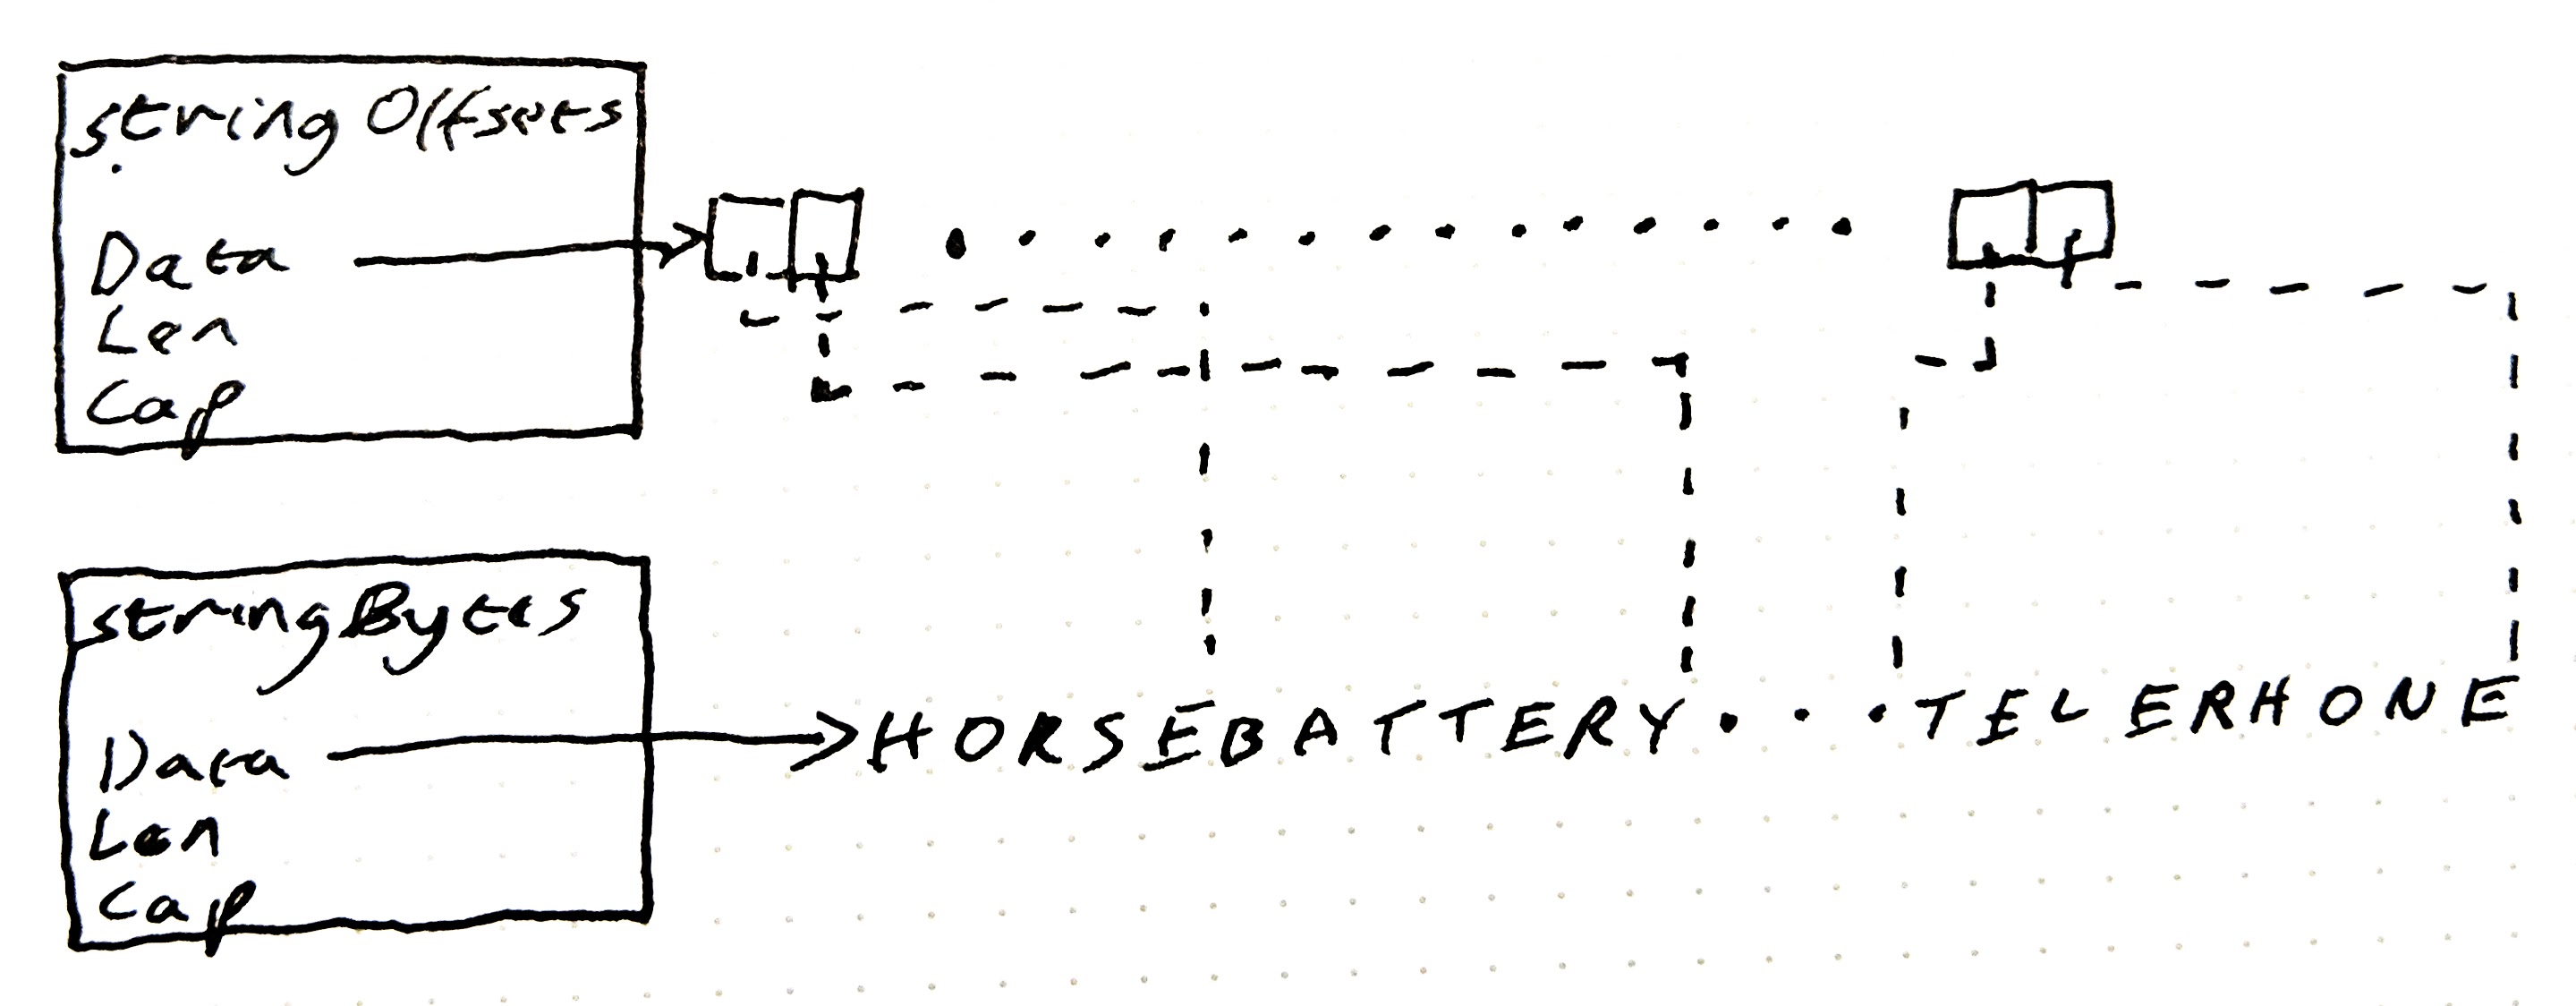 string Offsets
Data
Len
Cap
stringBytes
Data
Len
Cap
HORSEBATTERY...TELERHONE